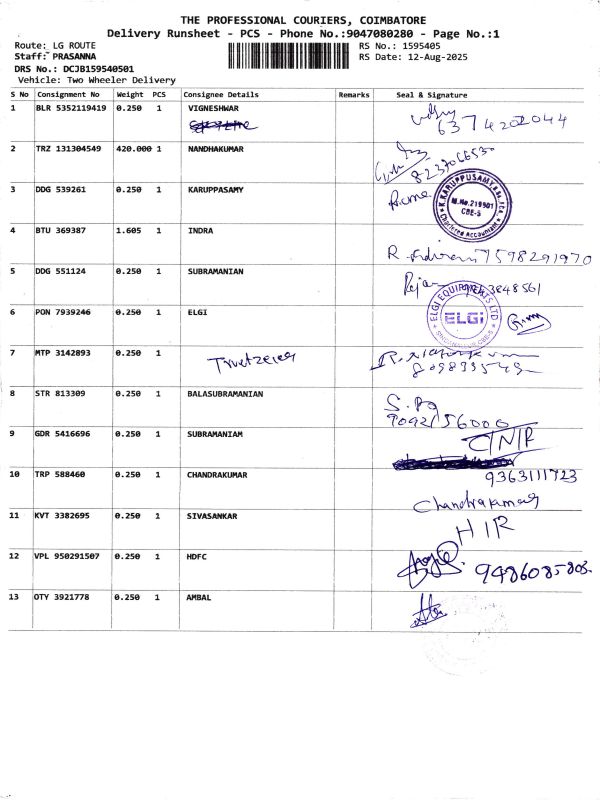 THE PROFESSIONAL COURIERS, COIMBATORE
Delivery Runsheet - PCS - Phone No.:9047080280 - Page No.:1
Route: LG ROUTE
RS No.: 1595405
Staff: PRASANNA
RS Date: 12-Aug-2025
DRS No.: DCJB159540501
Vehicle: Two Wheeler Delivery
S No Consignment No Weight PCS Consignee Details Remarks Seal & Signature
1 BLR 5352119419 0.250 1 VIGNESHWAR
6374202044
2 TRZ 131304549 420.000 1 NANDHAKUMAR
8237066530
3 DDG 539261 0.250 1 KARUPPASAMY
K.KARUPPUSAMY
M.No.219901
CBE-5
Chartered Accountant
4 BTU 369387 1.605 1 INDRA
R. 7598291970
5 DDG 551124 0.250 1 SUBRAMANIAN
6 PON 7939246 0.250 1 ELGI
ELGI EQUIPMENTS LTD
ELGi
7 MTP 3142893 0.250 1
8 STR 813309 0.250 1 BALASUBRAMANIAN
9092156000
9 GDR 5416696 0.250 1 SUBRAMANIAM
CTNR
9363111723
10 TRP 588460 0.250 1 CHANDRAKUMAR
Chandrakumar
11 KVT 3382695 0.250 1 SIVASANKAR
HIR
12 VPL 950291507 0.250 1 HDFC
9486085803.
13 OTY 3921778 0.250 1 AMBAL